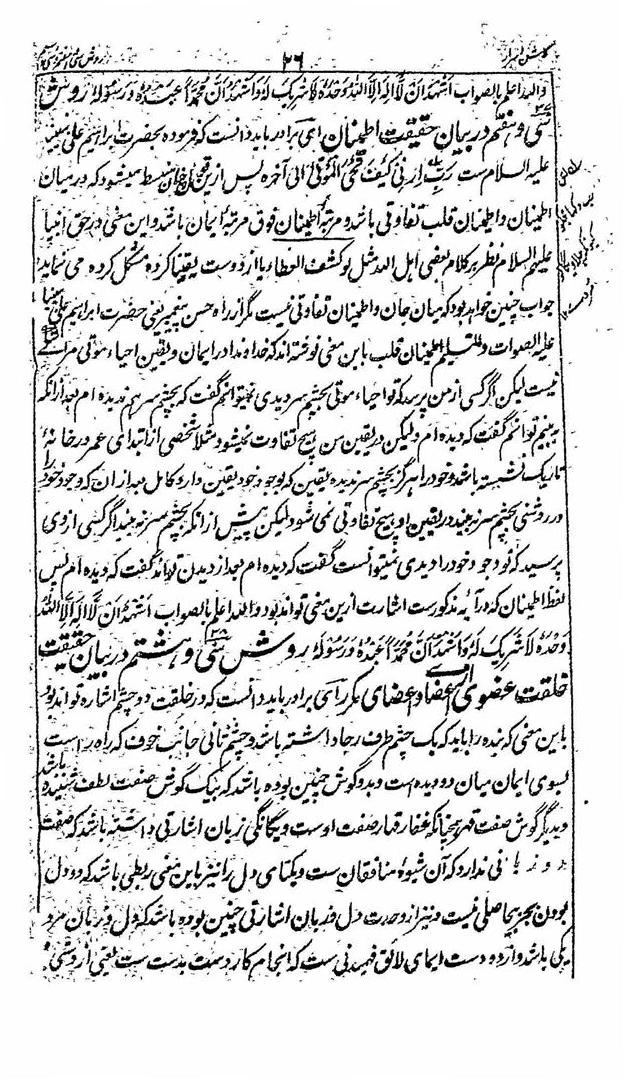 گلشن اسرار
۲۶
روش سی و هفتم و سی و هشتم
والله اعلم بالصواب اشهد ان لا اله الا الله وحده لا شریک له و اشهد ان محمدا عبده و رسوله روش
سی و هفتم در بیان حقیقت اطمینان ای برادر باید دانست که فرموده حضرت ابراهیم علی نبینا
علیه السلام ست رب ارنی کیف تحی الموتی الی آخره پس ازین مستنبط میشود که درمیان
اطمینان و اطمینان قلب تفاوتی باشد و مرتبه اطمینان فوق مرتبه ایمان باشد و این معنی در حق انبیا
علیهم السلام نظر بر کلام بعضی اهل الله مثل لو کشف الغطاء ما ازددت یقینا کرده مشکل کرده می نماید
جواب چنین خواهد بود که میان جان و اطمینان تفاوتی نیست مگر از راه حس پیغمبر یعنی حضرت ابراهیم علی نبینا
علیه الصلوات و التسلیم اطمینان قلب باین معنی نوشته اند که خداوندا در ایمان و یقین احیاء موتی مرا شکی
نیست لیکن اگر کسی از من پرسد که تو احیاء موتی بچشم سر دیدی نمیتوانم گفت که بچشم سر هم ندیده ام بعد ازانکه
به بینم توانم گفت که دیده ام ولیکن در یقین من هیچ تفاوت نمیشود مثلا شخصی از ابتدای عمر در خانهٔ
تاریک نشسته باشد و خود را هرگز بچشم سر ندیده یقین که بوجود خود یقین دارد کامل بعد ازان که وجود خود را
در روشنی بچشم سر به بیند در یقین او هیچ تفاوتی نمی شود لیکن پیش ازانکه بچشم سر نه بیند اگر کسی ازوی
پرسید که تو وجود خود را دیدی نمیتوانست گفت که دیده ام بعد از دیدن تواند گفت که دیده ام پس
لفظ اطمینان که در آیه مذکورست اشارت ازین معنی تواند بود والله اعلم بالصواب اشهد ان لا اله الا الله
وحده لا شریک له و اشهد ان محمدا عبده و رسوله روش سی و هشتم در بیان حقیقت
خلقت عضوی از اعضا و اعضای مکرر ای برادر باید دانست که در خلقت دو چشم اشاره تواند بود
باین معنی که بنده را باید که یک چشم طرف رجا داشته باشد و چشم ثانی جانب خوف که راه راست
بسوی ایمان میان دو دیده است و بدو گوش چنین بوده باشد که بیک گوش صفت لطف شنیده باشد
و بدیگر گوش صفت قهر همچنانکه غفار قهار صفت اوست و یگانگی زبان اشارتی داشته باشد که صفت
دو زبانی ندارد که آن شیوهٔ منافقان ست و یکتای دل را نیز باین معنی ربطی باشد که دو دل
بودن بجز بیحاصلی نیست و نیز از وحدت دل و زبان اشارتی چنین بوده باشد که دل و زبان مرد
یکی باشد و از دو دست ایمای لائق فهمیدنی ست که انجام کار دست بدست ست یعنی از روشنی